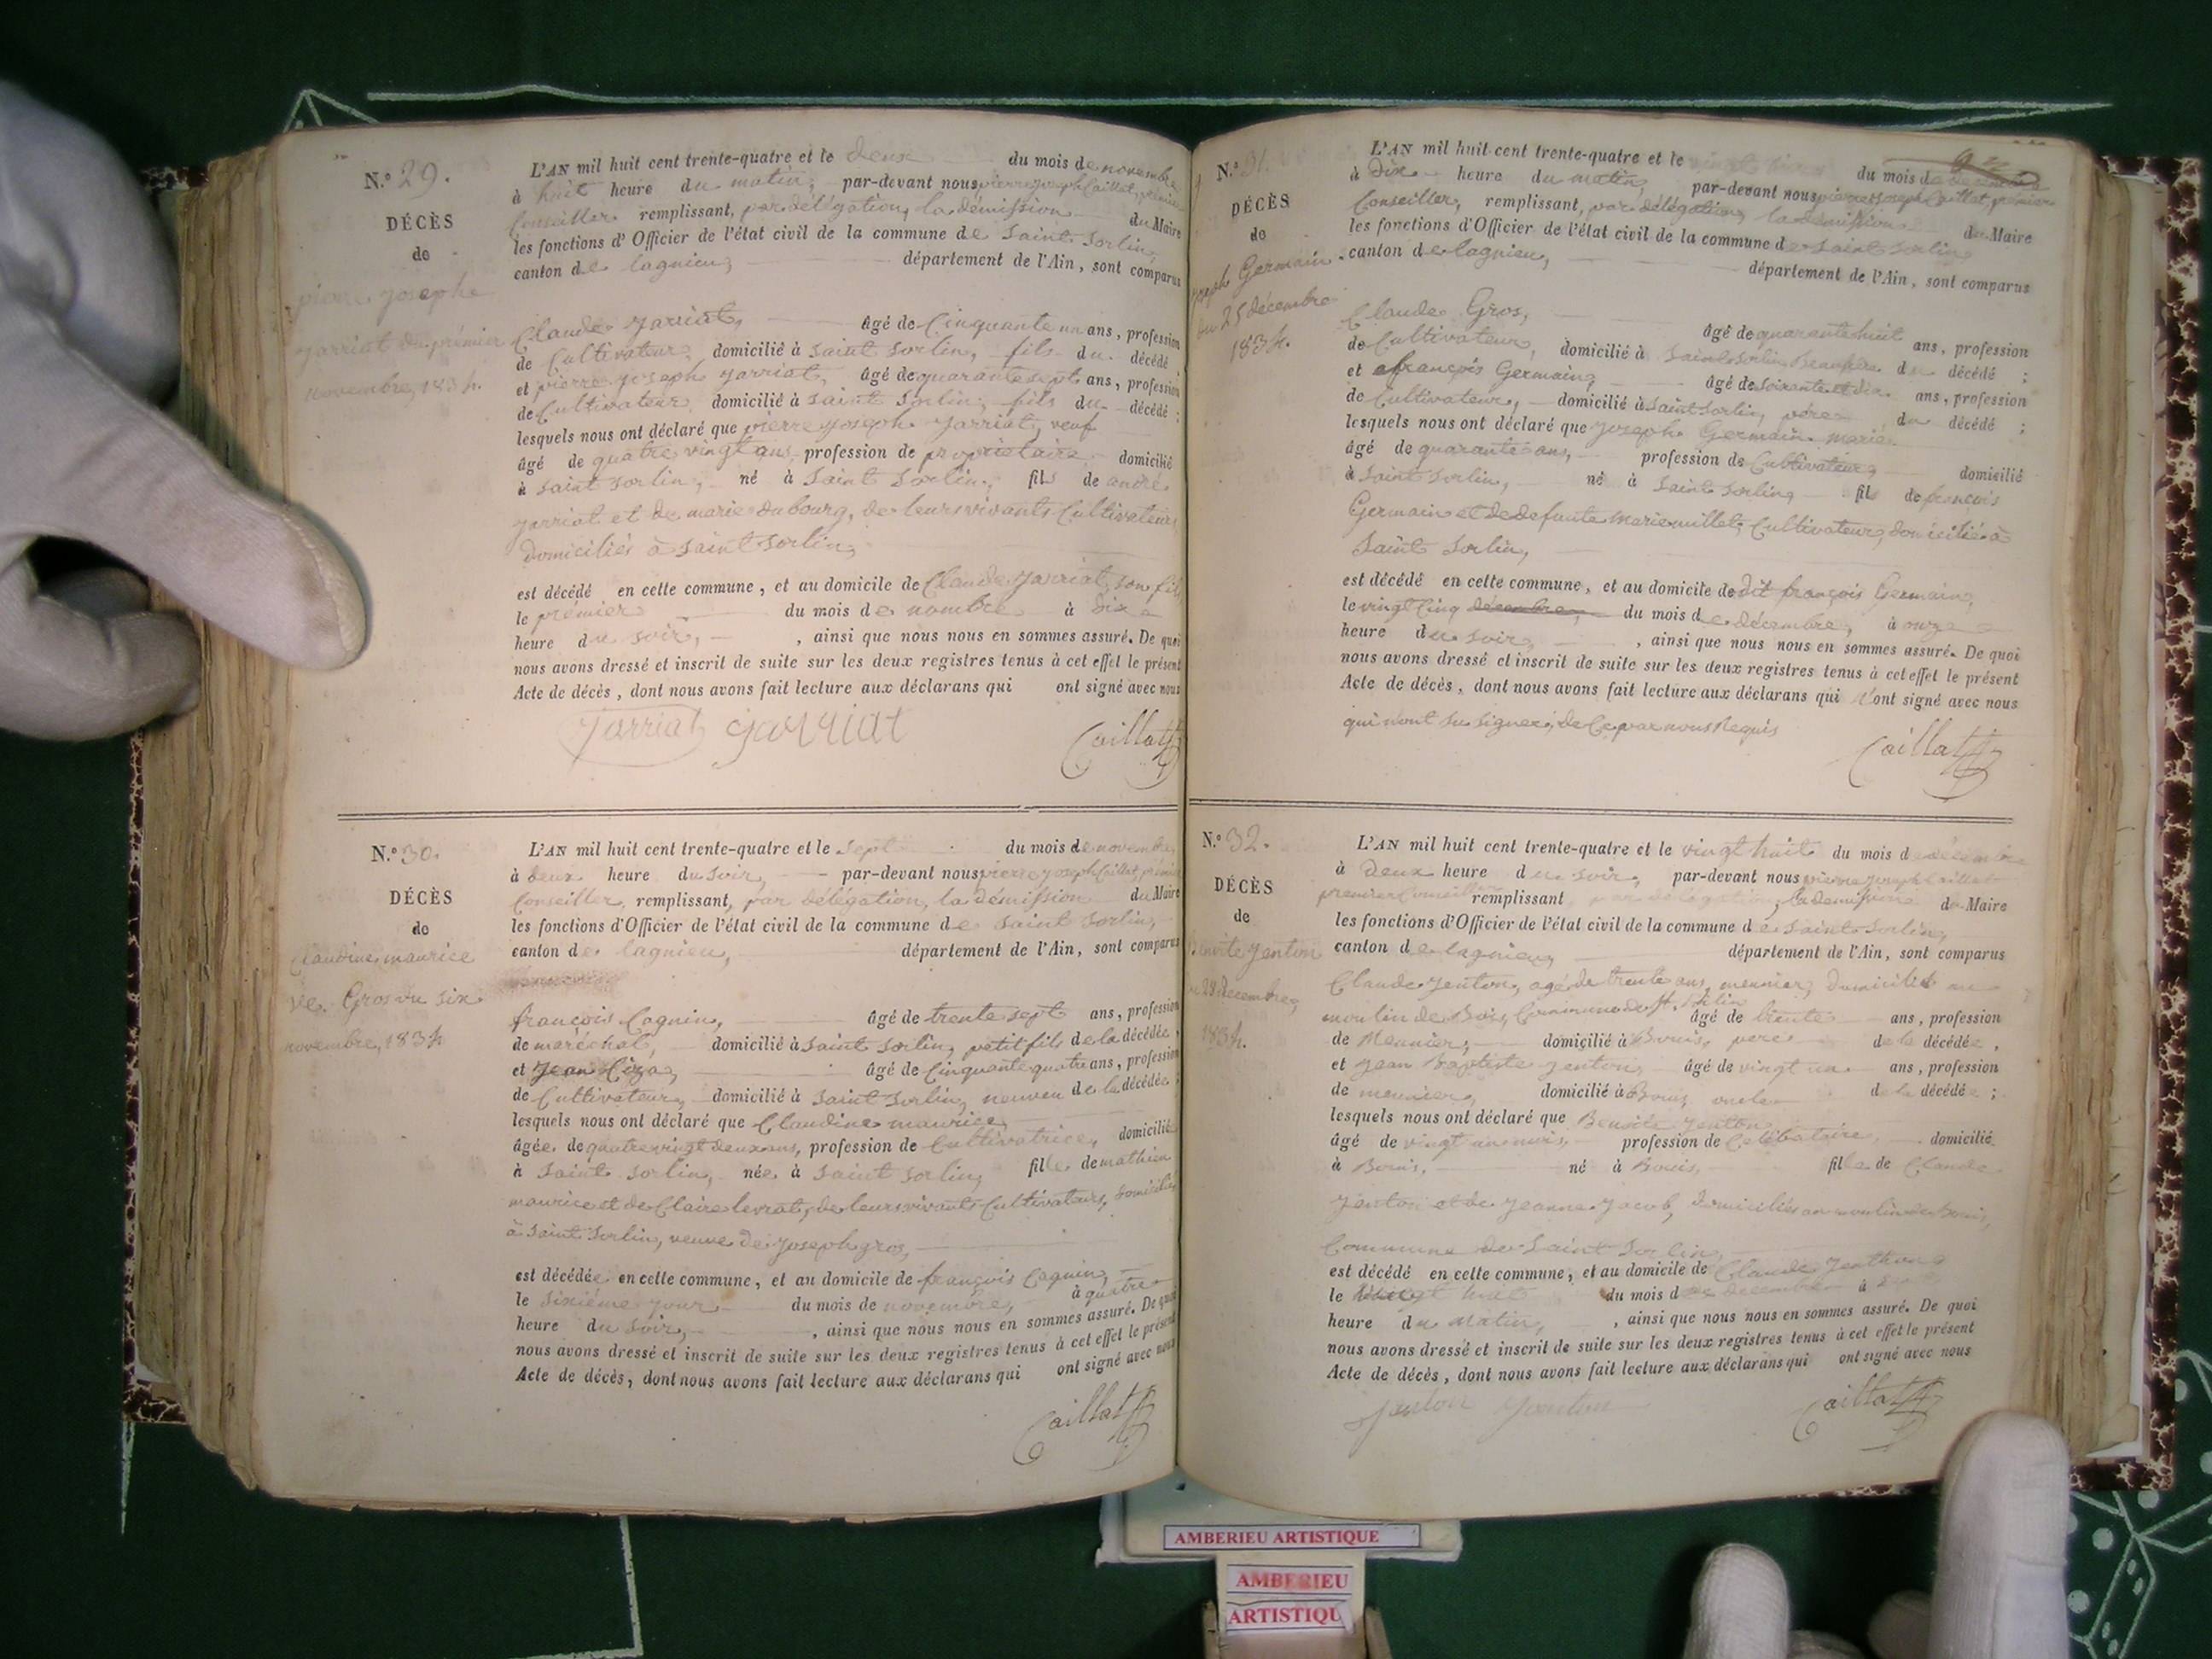 N.º 29.
DÉCÈS
de
pierre Josephe
jarriat du prémier
novembre, 1834.
L'AN mil huit cent trente-quatre et le deux du mois de novembre
à huit heure du matin, par-devant nous pierre joseph Caillat, prémier
Conseiller remplissant, par délégation, la démission du Maire
les fonctions d'Officier de l'état civil de la commune de Saint Sorlin,
canton de lagnieu, département de l'Ain, sont comparus
Claude jarriat, âgé de Cinquante un ans, profession
de Cultivateur, domicilié à Saint Sorlin, fils du décédé
et pierre joseph jarriat, âgé de quarante sept ans, profession
de Cultivateur, domicilié à Saint Sorlin, fils du décédé ;
lesquels nous ont déclaré que pierre joseph jarriat, veuf
âgé de quatre vingt ans, profession de propriétaire, domicilié
à Saint Sorlin, né à Saint Sorlin, fils de andré
jarriat et de marie dubourg, de leurs vivants Cultivateurs
domiciliés à Saint Sorlin,
est décédé en cette commune, et au domicile de Claude jarriat, son fils
le prémier du mois de nombre à dix
heure du soir, , ainsi que nous nous en sommes assuré. De quoi
nous avons dressé et inscrit de suite sur les deux registres tenus à cet effet le présent
Acte de décès, dont nous avons fait lecture aux déclarans qui ont signé avec nous
Jarriat Jarriat Caillat
N.º 30.
DÉCÈS
de
Claudine maurice
ve. Gros du six
novembre, 1834.
L'AN mil huit cent trente-quatre et le sept du mois de novembre
à deux heure du soir, par-devant nous pierre joseph Caillat, prémier
Conseiller, remplissant, par délégation, la démission du Maire
les fonctions d'Officier de l'état civil de la commune de Saint Sorlin,
canton de lagnieu, département de l'Ain, sont comparus
françois Cagnin, âgé de trente sept ans, profession
de maréchal, domicilié à Saint Sorlin, petit fils de la décédée,
et Jean âgé de Cinquante quatre ans, profession
de Cultivateur, domicilié à Saint Sorlin, neuveu de la décédée ;
lesquels nous ont déclaré que Claudine maurice,
âgée de quatre vingt deux ans, profession de Cultivatrice, domicilié
à Saint Sorlin, née à Saint Sorlin, fille de mathieu
maurice et de Claire levrat, de leurs vivants Cultivateurs, domiciliés
à Saint Sorlin, veuve de joseph gros,
est décédée en cette commune, et au domicile de françois Cagnin,
le sixiéme jour du mois de novembre, à quatre
heure du soir, , ainsi que nous nous en sommes assuré. De quoi
nous avons dressé et inscrit de suite sur les deux registres tenus à cet effet le présent
Acte de décès, dont nous avons fait lecture aux déclarans qui ont signé avec nous
Caillat
N.º 31.
DÉCÈS
de
joseph Germain
du 25 décembre
1834.
L'AN mil huit cent trente-quatre et le du mois de
à dix heure du matin, par-devant nous pierre joseph Caillat, prémier
Conseiller, remplissant, par délégation, la démission du Maire
les fonctions d'Officier de l'état civil de la commune de Saint Sorlin
canton de lagnieu, département de l'Ain, sont comparus
Claude Gros, âgé de quarante huit ans, profession
de Cultivateur, domicilié à Saint Sorlin, beau frère du décédé ;
et françois Germain, âgé de soixante et dix ans, profession
de Cultivateur, domicilié à Saint Sorlin, père du décédé ;
lesquels nous ont déclaré que joseph Germain marié
âgé de quarante ans, profession de Cultivateur, domicilié
à Saint Sorlin, né à Saint Sorlin, fils de françois
Germain et de defunte Marie millet, Cultivateur, domicilié à
Saint Sorlin,
est décédé en cette commune, et au domicile de dit françois Germain,
le vingt Cinq du mois de décembre, à onze
heure du soir, , ainsi que nous nous en sommes assuré. De quoi
nous avons dressé et inscrit de suite sur les deux registres tenus à cet effet le présent
Acte de décès, dont nous avons fait lecture aux déclarans qui n'ont signé avec nous
qui n'ont su signer, de Ce par nous Requis
Caillat
N.º 32.
DÉCÈS
de
Benoite Jenton
28 decembre,
1834.
L'AN mil huit cent trente-quatre et le vingt huit du mois de décembre
à Deux heure du soir, par-devant nous pierre joseph Caillat
premier Conseiller remplissant, par délégation, la démission du Maire
les fonctions d'Officier de l'état civil de la commune de Saint Sorlin,
canton de lagnieu, département de l'Ain, sont comparus
Claude Jenton, agé de trente ans, meunier, Domicilié au
moulin de Bouis, Commune de St. Sorlin âgé de trente ans, profession
de Meunier, domicilié à Bouis, père de la décédée,
et Jean Baptiste Jenton, âgé de vingt un ans, profession
de meunier, domicilié à Bouis, oncle de la décédée ;
lesquels nous ont déclaré que Benoite Jenton
âgé de vingt un mois, profession de Celibataire, domicilié
à Bouis, né à Bouis, fille de Claude
Jenton et de Jeanne Jacob, Domiciliés au moulin de Bouis,
Commune de Saint Sorlin,
est décédé en cette commune, et au domicile de Claude Jenthon
le vingt huit du mois de decembre à
heure du matin, , ainsi que nous nous en sommes assuré. De quoi
nous avons dressé et inscrit de suite sur les deux registres tenus à cet effet le présent
Acte de décès, dont nous avons fait lecture aux déclarans qui ont signé avec nous
Jenton Jenton Caillat
AMBERIEU ARTISTIQUE
AMBERIEU
ARTISTIQU